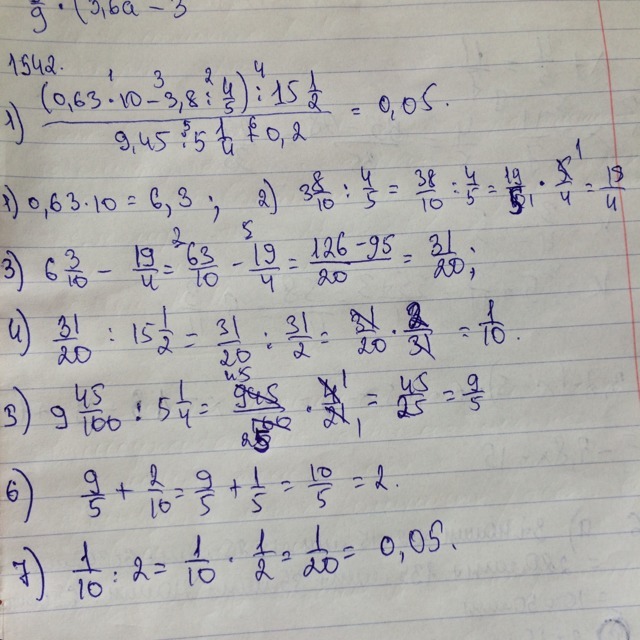 9 · (3,6a − 3
1542.
1) ((0,63 · 10 − 3,8 : 4/5) : 15 1/2) / (9,45 : 5 1/4 + 0,2) = 0,05.
1) 0,63 · 10 = 6,3; 2) 3 8/10 : 4/5 = 38/10 : 4/5 = 19/5 · 5/4 = 19/4
3) 6 3/10 − 19/4 = 63/10 − 19/4 = (126 − 95)/20 = 31/20;
4) 31/20 : 15 1/2 = 31/20 : 31/2 = 31/20 · 2/31 = 1/10.
5) 9 45/100 : 5 1/4 = 945/100 · 4/21 = 45/25 = 9/5
6) 9/5 + 2/10 = 9/5 + 1/5 = 10/5 = 2.
7) 1/10 : 2 = 1/10 · 1/2 = 1/20 = 0,05.